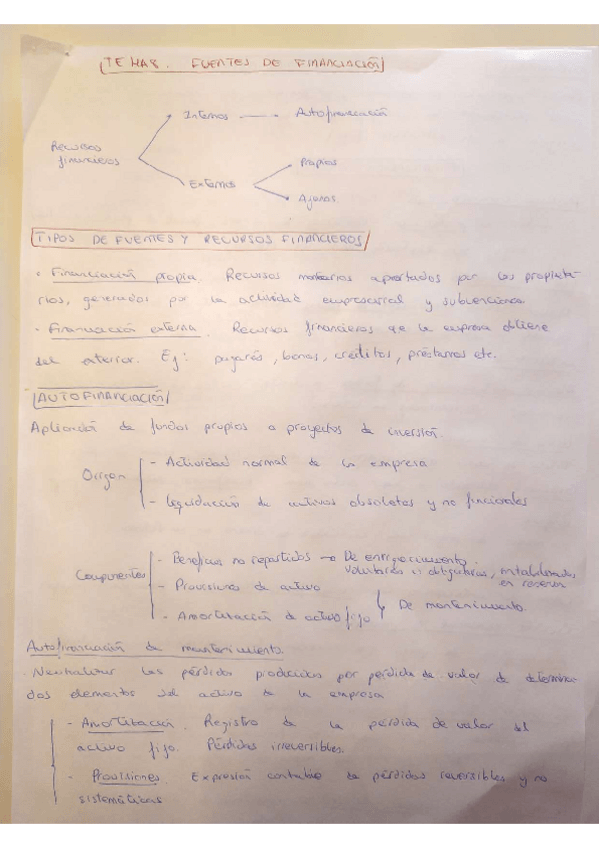 TEMA 8. FUENTES DE FINANCIACIÓN
Internos → Autofinanciación
Recursos financieros
Externos
Propios
Ajenos.
TIPOS DE FUENTES Y RECURSOS FINANCIEROS
· Financiación propia. Recursos monetarios aportados por los propieta-
rios, generados por la actividad empresarial y subvenciones
· Financiación externa. Recursos financieros que la empresa obtiene
del exterior. Ej: pagarés, bonos, créditos, préstamos etc.
AUTOFINANCIACIÓN
Aplicación de fondos propios a proyectos de inversión.
Origen
- Actividad normal de la empresa
- Liquidación de activos obsoletos y no funcionales
Componentes
- Beneficios no repartidos → De enriquecimiento.
voluntarios u obligatorios, contabilizados
en reservas
- Provisiones de activo
- Amortización de activo fijo
De mantenimiento.
Autofinanciación de mantenimiento.
Neutralizar las pérdidas producidas por pérdida de valor de determina-
dos elementos del activo de la empresa
- Amortización. Registro de la pérdida de valor del
activo fijo. Pérdidas irreversibles.
- Provisiones. Expresión contable de pérdidas reversibles y no
sistemáticas